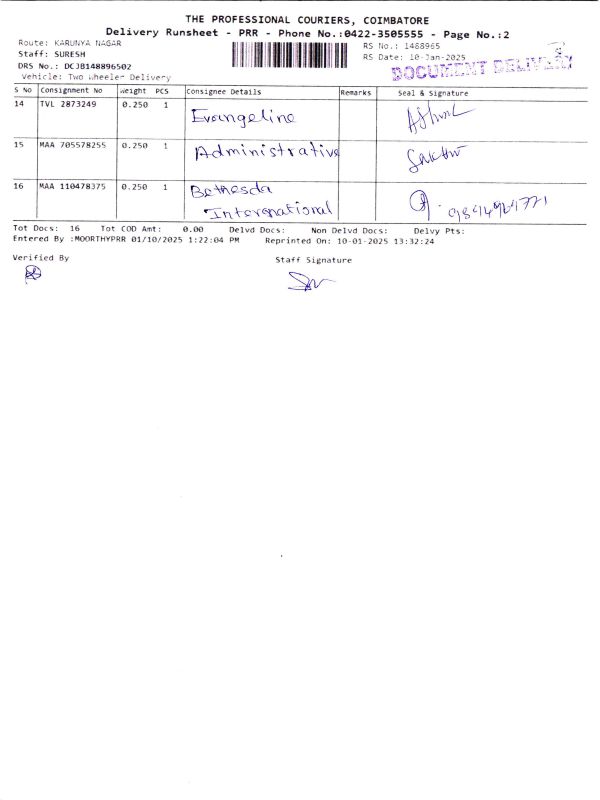 THE PROFESSIONAL COURIERS, COIMBATORE
Delivery Runsheet - PRR - Phone No.:0422-3505555 - Page No.:2
Route: KARUNYA NAGAR RS No.: 1488965
Staff: SURESH RS Date: 10-Jan-2025
DRS No.: DCJB148896502 DOCUMENT DELIVERY
Vehicle: Two Wheeler Delivery
S No Consignment No Weight PCS Consignee Details Remarks Seal & Signature
14 TVL 2873249 0.250 1 Evangeline
15 MAA 705578255 0.250 1 Administrative
16 MAA 110478375 0.250 1 Bethesda
International
Tot Docs: 16 Tot COD Amt: 0.00 Delvd Docs: Non Delvd Docs: Delvy Pts:
Entered By :MOORTHYPRR 01/10/2025 1:22:04 PM Reprinted On: 10-01-2025 13:32:24
Verified By Staff Signature